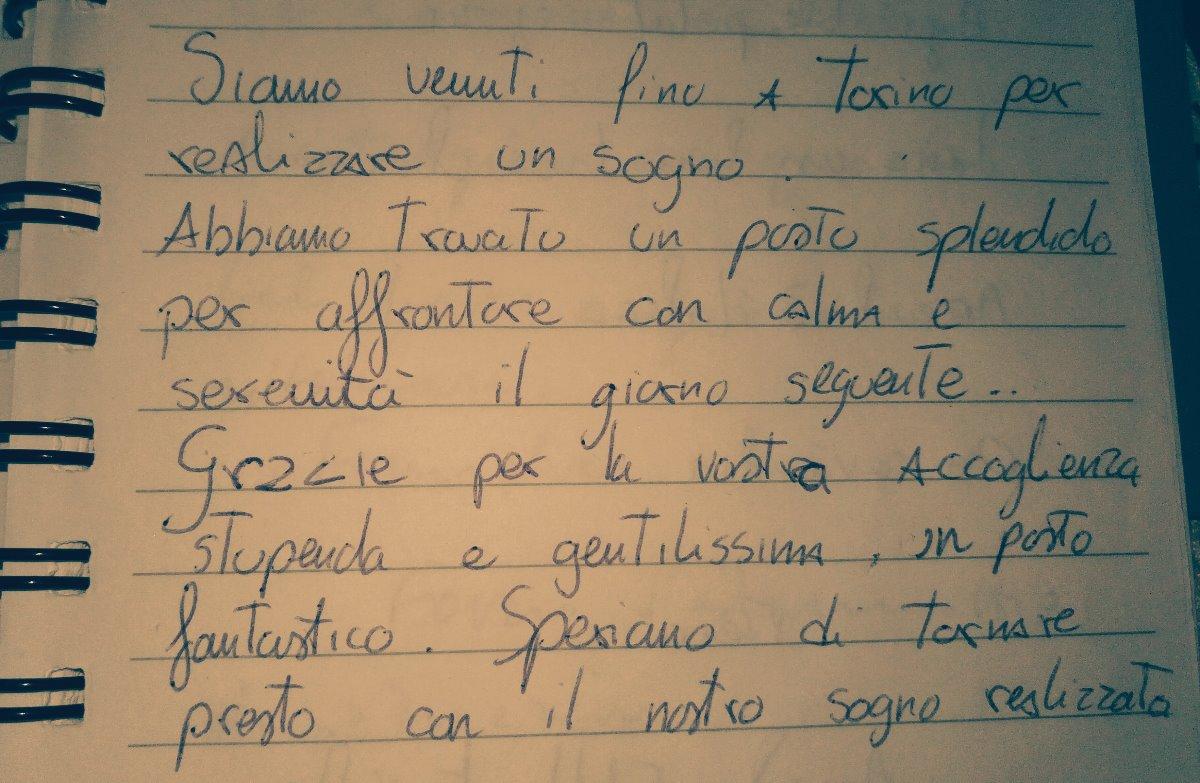 Siamo venuti fino a Torino per
realizzare un sogno.
Abbiamo trovato un posto splendido
per affrontare con calma e
serenità il giorno seguente..
Grazie per la vostra Accoglienza
stupenda e gentilissima, un posto
fantastico. Speriamo di tornare
presto con il nostro sogno realizzato